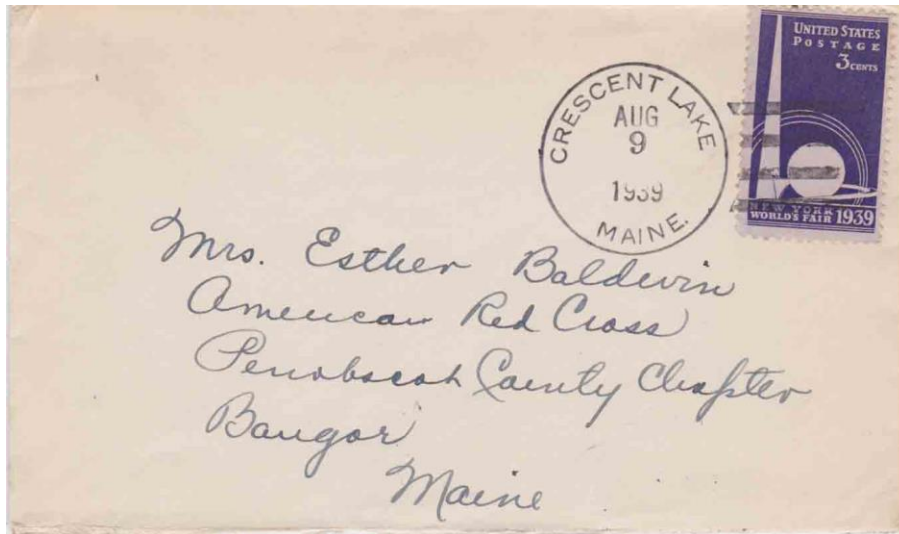 UNITED STATES
POSTAGE
3 CENTS
NEW YORK
WORLD'S FAIR 1939
CRESCENT LAKE
AUG
9
1939
MAINE.
Mrs. Esther Baldwin
American Red Cross
Penobscot County Chapter
Bangor
Maine